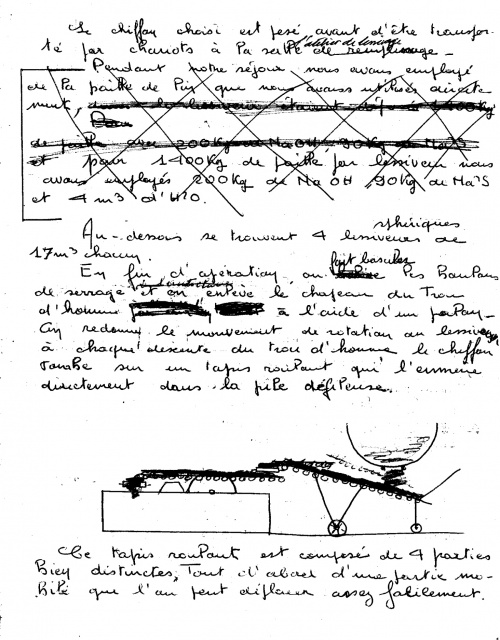 Le chiffon choisi est pesé avant d'être transpor-
té par chariots à la salle de remplissage -
atelier de lessivage
Pendant notre séjour nous avons employé
de la paille de Pin que nous avons utilisés directe-
ment,
de paille avec 200 Kg de NaOH 90 Kg de Na²S
et pour 1400 Kg de paille par lessiveur nous
avons employés 200 Kg de NaOH, 90 Kg de Na²S
et 4 m3 d'H²O.
sphériques
Au-dessous se trouvent 4 lessiveurs de
17 m³ chacun.
fait basculer
En fin d'opération, on les boulons
de serrage et on enlève le chapeau du trou
d'homme à l'aide d'un palan -
On redonne le mouvement de rotation au lessiveur
à chaque descente du trou d'homme le chiffon
tombe sur un tapis roulant qui l'emmène
directement dans la pile défileuse.
Ce tapis roulant est composé de 4 parties
bien distinctes, Tout d'abord d'une partie mo-
bile que l'on peut déplacer assez facilement.